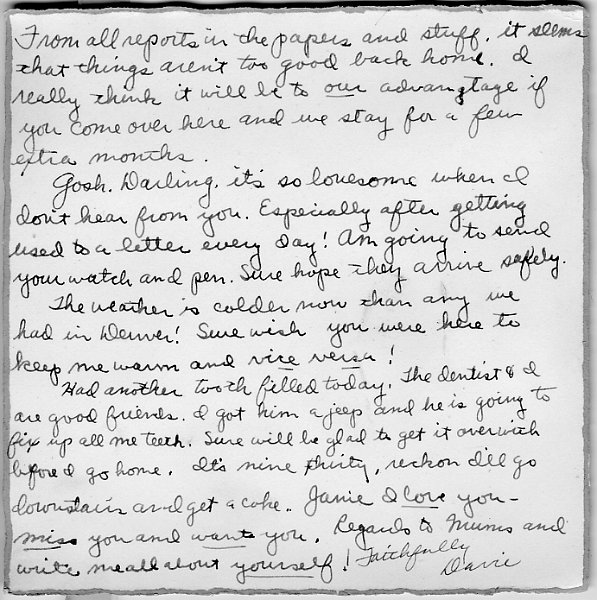 From all reports in the papers and stuff, it seems
that things aren't too good back home. I
really think it will be to our advantage if
you come over here and we stay for a few
extra months.
Gosh, Darling, it's so lonesome when I
don't hear from you. Especially after getting
used to a letter every day! Am going to send
your watch and pen. Sure hope they arrive safely.
The weather is colder now than any we
had in Denver! Sure wish you were here to
keep me warm and vice versa!
Had another tooth filled today. The dentist & I
are good friends. I got him a jeep and he is going to
fix up all me teeth. Sure will be glad to get it over with
before I go home. It's nine thirty, reckon I'll go
downstairs and get a coke. Janie I love you -
miss you and want you. Regards to Mums and
write me all about yourself! Faithfully
Davie